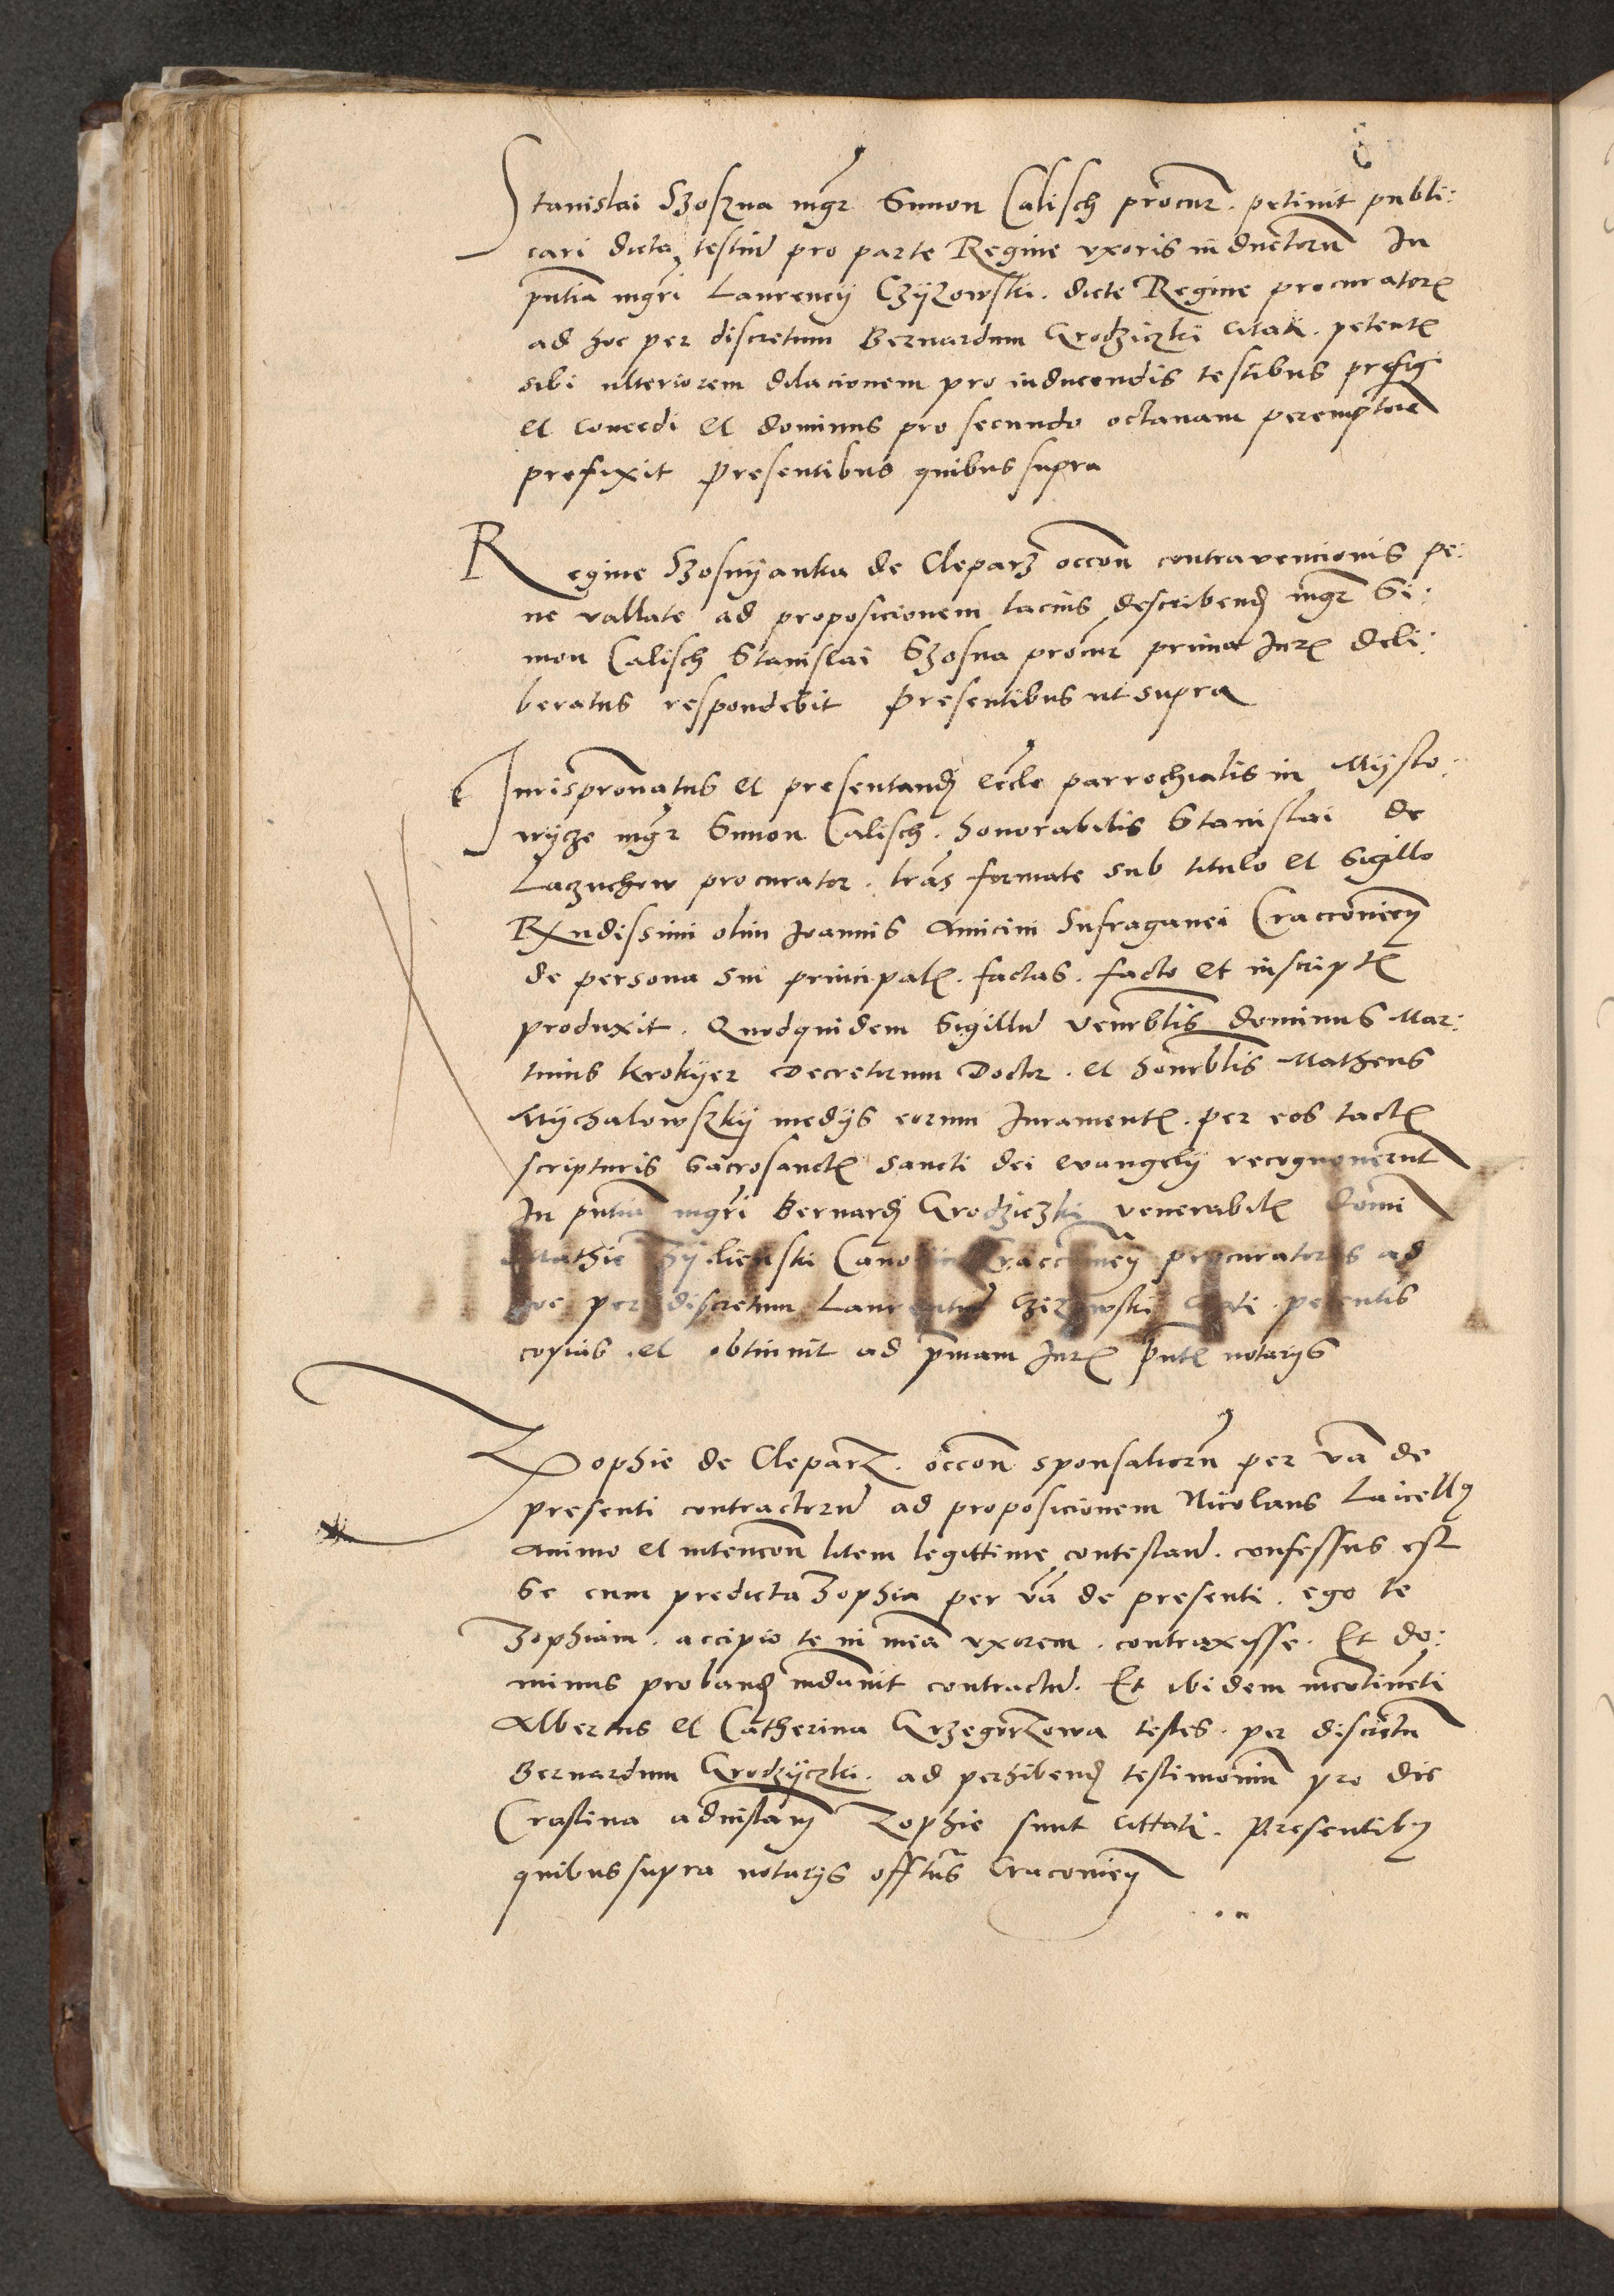 Stanislai Szoszna mgr Simon Calisch procur. petiuit publi:
cari dicta testiu pro parte Regine vxoris inductoru In
pntia mgri Laurency Czyzowski. dicte Regine procurator
ad hoc per discretum Bernardum Grodziczki citati. petent
sibi vlteriorem dilacionem pro inducendis testibus prefig
et concedi et dominus pro secundo octauam peremptorie
prefixit presentibus quibus supra
Regine Szosnyanka de Cleparz occon contravencionis pe:
ne vallate ad proposicionem lacius describend mgr Si:
mon Calisch Stanislai Szosna procur prima Jur deli:
beratus respondebit presentibus ut supra
Jurispronatus et presentand eccle parrochialis in Mysto:
wycze mgr Simon Calisch. honorabilis Stanislai de
Laczuchow procurator. tras formate sub titulo et Sigillo
Rxndissimi olim Joannis Amicini Sufraganei Cracconiecn
de persona sui principal. factas. facto et inscript
produxit. Quodquidem Sigillu venerblis dominus Mar:
tinus Krokyer Decretorum Doctor. et honrblis Matheus
Mychalowszky medys eorum Jurament. per eos tact
scripturis sacrosanct sancti dei evangely recognouerut
In pntia mgri Bernard Grodziczki venerabil domi
Mathie canonici Cracconien procuratoris ad
hoc per discretum Laurentiu Czizowski citati. petentis
copias. et obtinuit ad pmam Jur pnt notarys
Zophie de Cleparz. occon sponsalioru per va de
presenti contractoru ad proposicionem Nicolaus Laicell
animo et intencon litem legittime contestan. confessus est
se cum predicta Zophia per va de presenti. ego te
Zophiam. accipio te in mea vxorem. contraxisse. Et do:
minus proband mdauit contractu. Et ibidem incotineti
Albertus et Catherina Grzegorzowa testes. per discretu
Bernardum Grodzyczki. ad perhibend testimoniu pro die
Crastina adinstan Zophie sunt cittati. Presentib
quibus supra notarys offtus Craconien